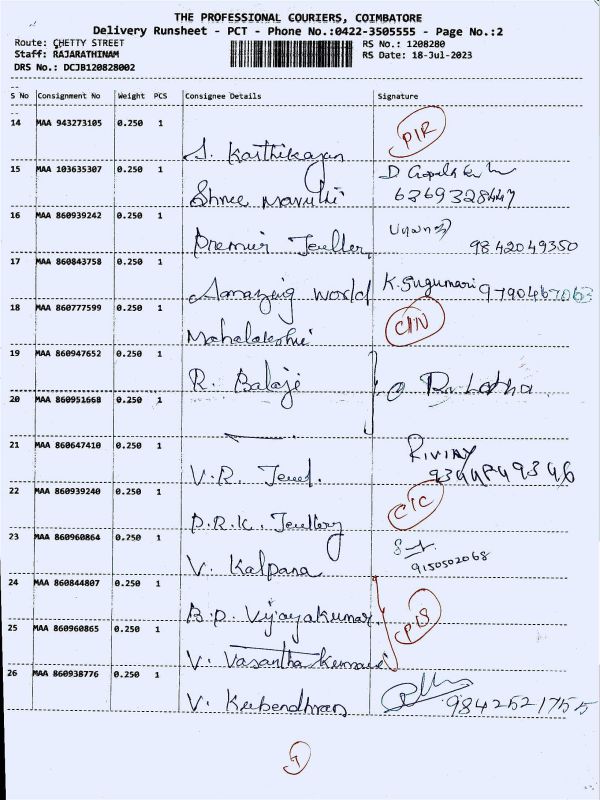 THE PROFESSIONAL COURIERS, COIMBATORE
Delivery Runsheet - PCT - Phone No.:0422-3505555 - Page No.:2
Route: CHETTY STREET
RS No.: 1208280
Staff: RAJARATHINAM
RS Date: 18-Jul-2023
DRS No.: DCJB120828002
S No Consignment No Weight PCS Consignee Details Signature
14 MAA 943273105 0.250 1
S. Karthikayan PIR
15 MAA 103635307 0.250 1
Shree Maruthi 6369328447
16 MAA 860939242 0.250 1
Premier Jeweller 9842049350
17 MAA 860843758 0.250 1
Amazing World K. Sugumari 9790467063
18 MAA 860777599 0.250 1
Mahalakshmi CIN
19 MAA 860947652 0.250 1
R. Balaje
20 MAA 860951668 0.250 1
21 MAA 860647410 0.250 1
V.R. Jewel.
22 MAA 860939240 0.250 1
P.R.K. Jewllery CIC
23 MAA 860960864 0.250 1
V. Kalpana 9150502068
24 MAA 860844807 0.250 1
B.P. Vijayakumar
25 MAA 860960865 0.250 1
V. Vasantha Kumari
26 MAA 860938776 0.250 1
V. Kubendhran 9842521755